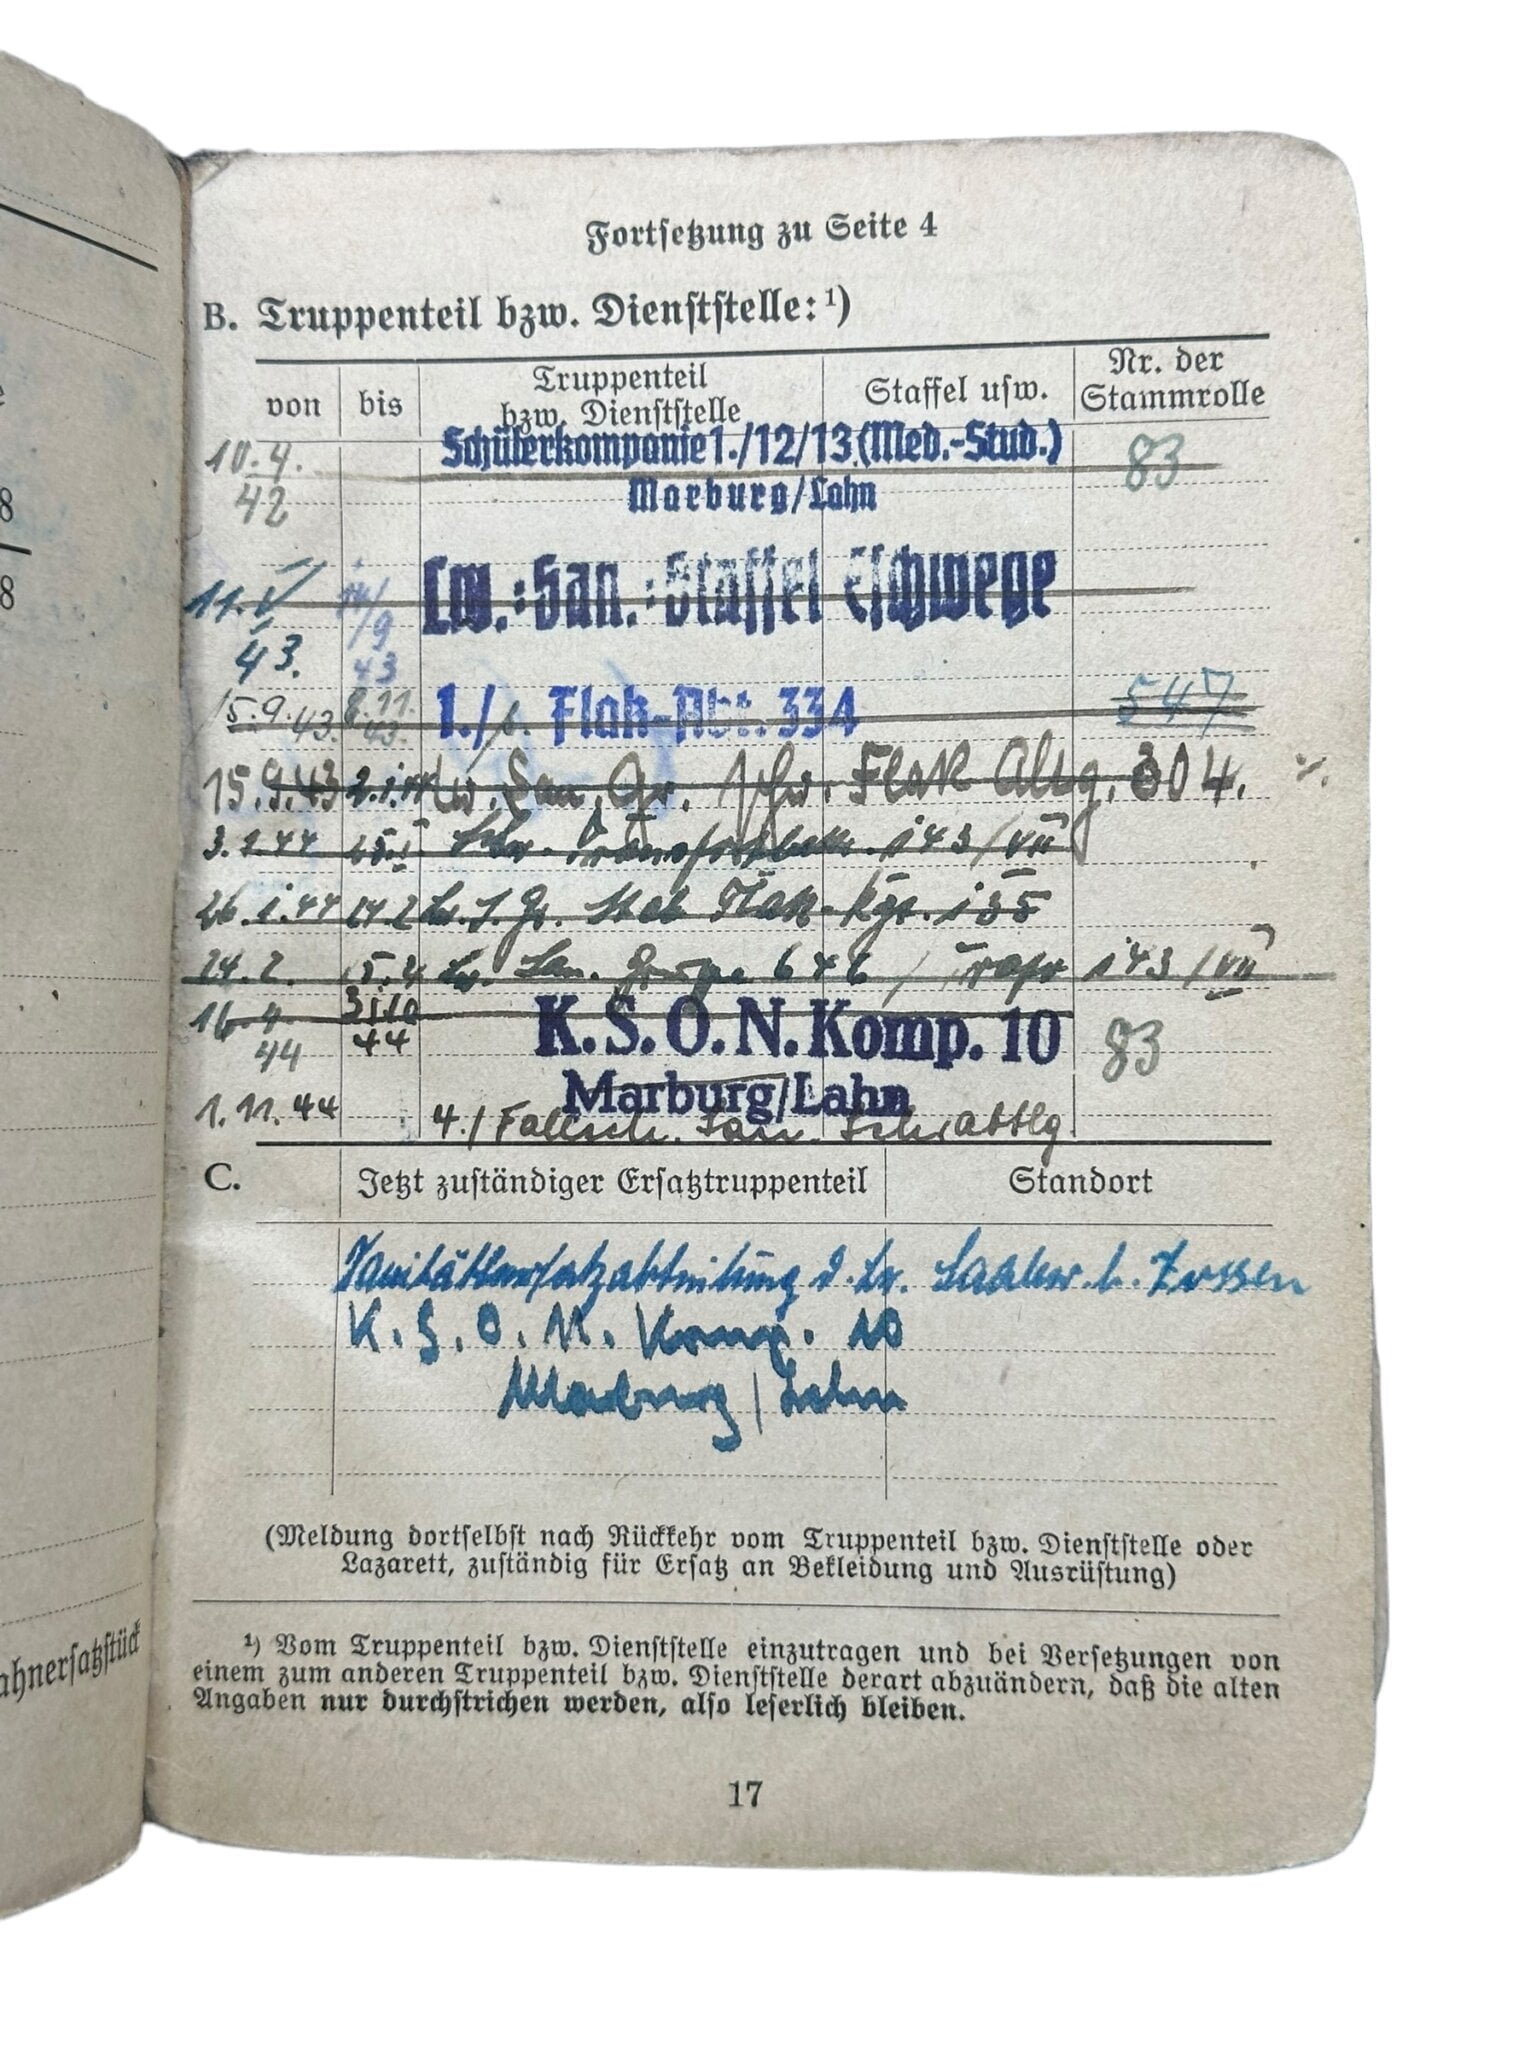 8
8
ahnersatzstück
Fortsetzung zu Seite 4
B. Truppenteil bzw. Dienststelle: ¹)
von bis Truppenteil bzw. Dienststelle Staffel usw. Nr. der Stammrolle
10.4. 42 Schülerkompanie 1./12/13 (Med.-Stud.) 83
Marburg/Lahn
11. V 43. 9 43 Lw.-San.-Staffel Eschwege
15.9.43. 8.11. 43. 1./ Flak-Abt. 334 547
15.9.43 2.1.44 Lw. San. Gr. schw. Flak Abtg. 304.
3.1.44 25.I 143/VII
26.1.44 Lw. S. Gr. Stab Flak-Rgt. 155
24.2. 15.4 Lw. San. Gruppe / 143/VII
16.4. 44 31.10 44 K.S.O.N. Komp. 10 83
Marburg/Lahn
1.11.44 4./Fallsch. San. Abtlg.
C. Jetzt zuständiger Ersatztruppenteil Standort
Sanitätsersatzabteilung d. Lw. b. Zossen
K.S.O.N. Komp. 10
Marburg/Lahn
(Meldung dortselbst nach Rückkehr vom Truppenteil bzw. Dienststelle oder
Lazarett, zuständig für Ersatz an Bekleidung und Ausrüstung)
¹) Vom Truppenteil bzw. Dienststelle einzutragen und bei Versetzungen von
einem zum anderen Truppenteil bzw. Dienststelle derart abzuändern, daß die alten
Angaben nur durchstrichen werden, also leserlich bleiben.
17